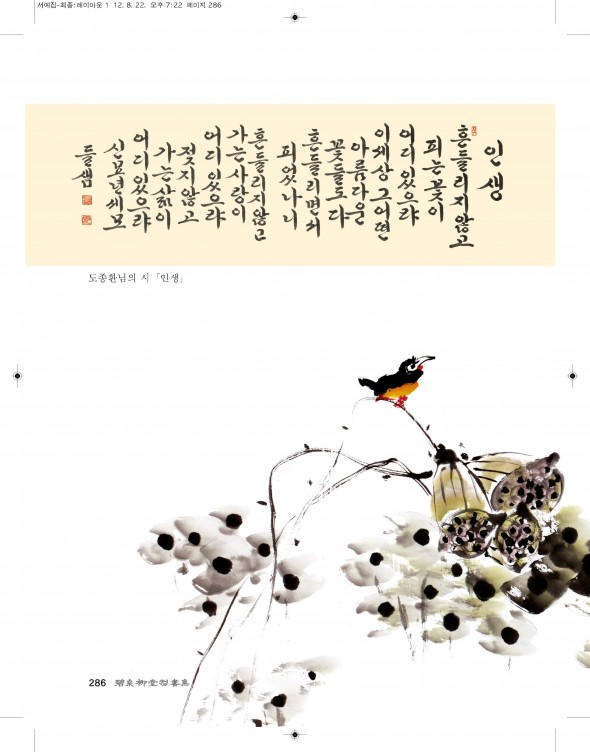 서예집-최종:레이아웃 1 12. 8. 22. 오후 7:22 페이지 286
인생
흔들리지않고
피는꽃이
어디있으랴
이세상 그어떤
아름다운
꽃들도 다
흔들리면서
피었나니
흔들리지않고
가는사랑이
어디있으랴
젖지않고
가는삶이
어디있으랴
신묘년세모
들샘
도종환님의 시 「인생」
286